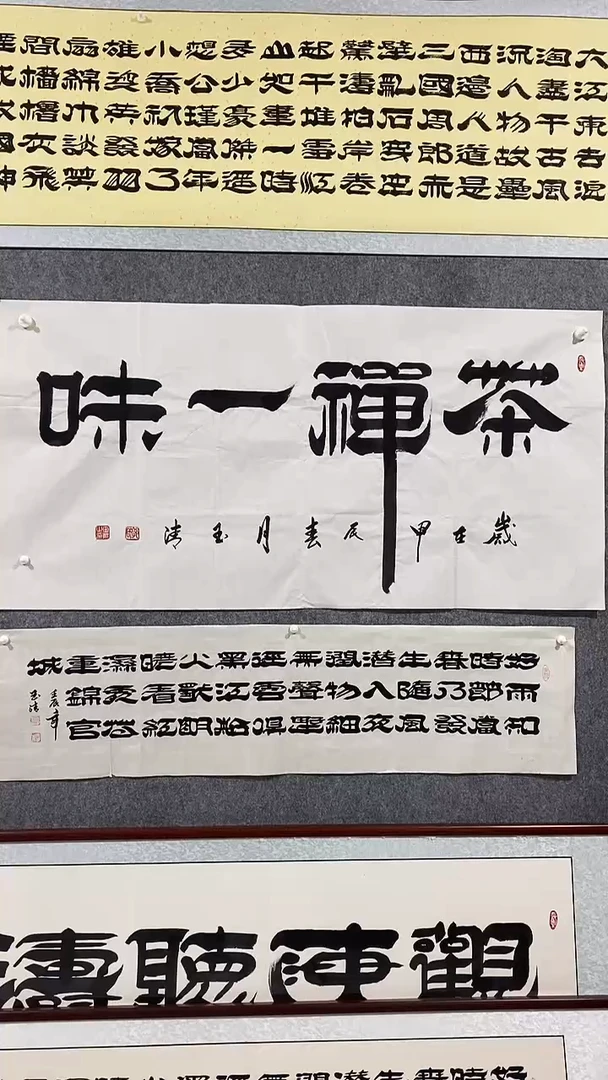 大江東去浪
淘盡千古風
流人物故壘
西邊人道是
三國周郎赤
壁亂石穿空
驚濤拍岸卷
起千堆雪江
山如畫一時
多少豪傑遥
想公瑾當年
小喬初嫁了
雄姿英發羽
扇綸巾談笑
間檣櫓灰飛
茶禪一味
歲在甲辰春月玉清
好雨知
時節當
春乃發
生隨風
潛入夜
潤物細
無聲野
徑雲俱
黑江船
火獨明
曉看紅
濕處花
重錦官
城
玉清
觀海聽濤